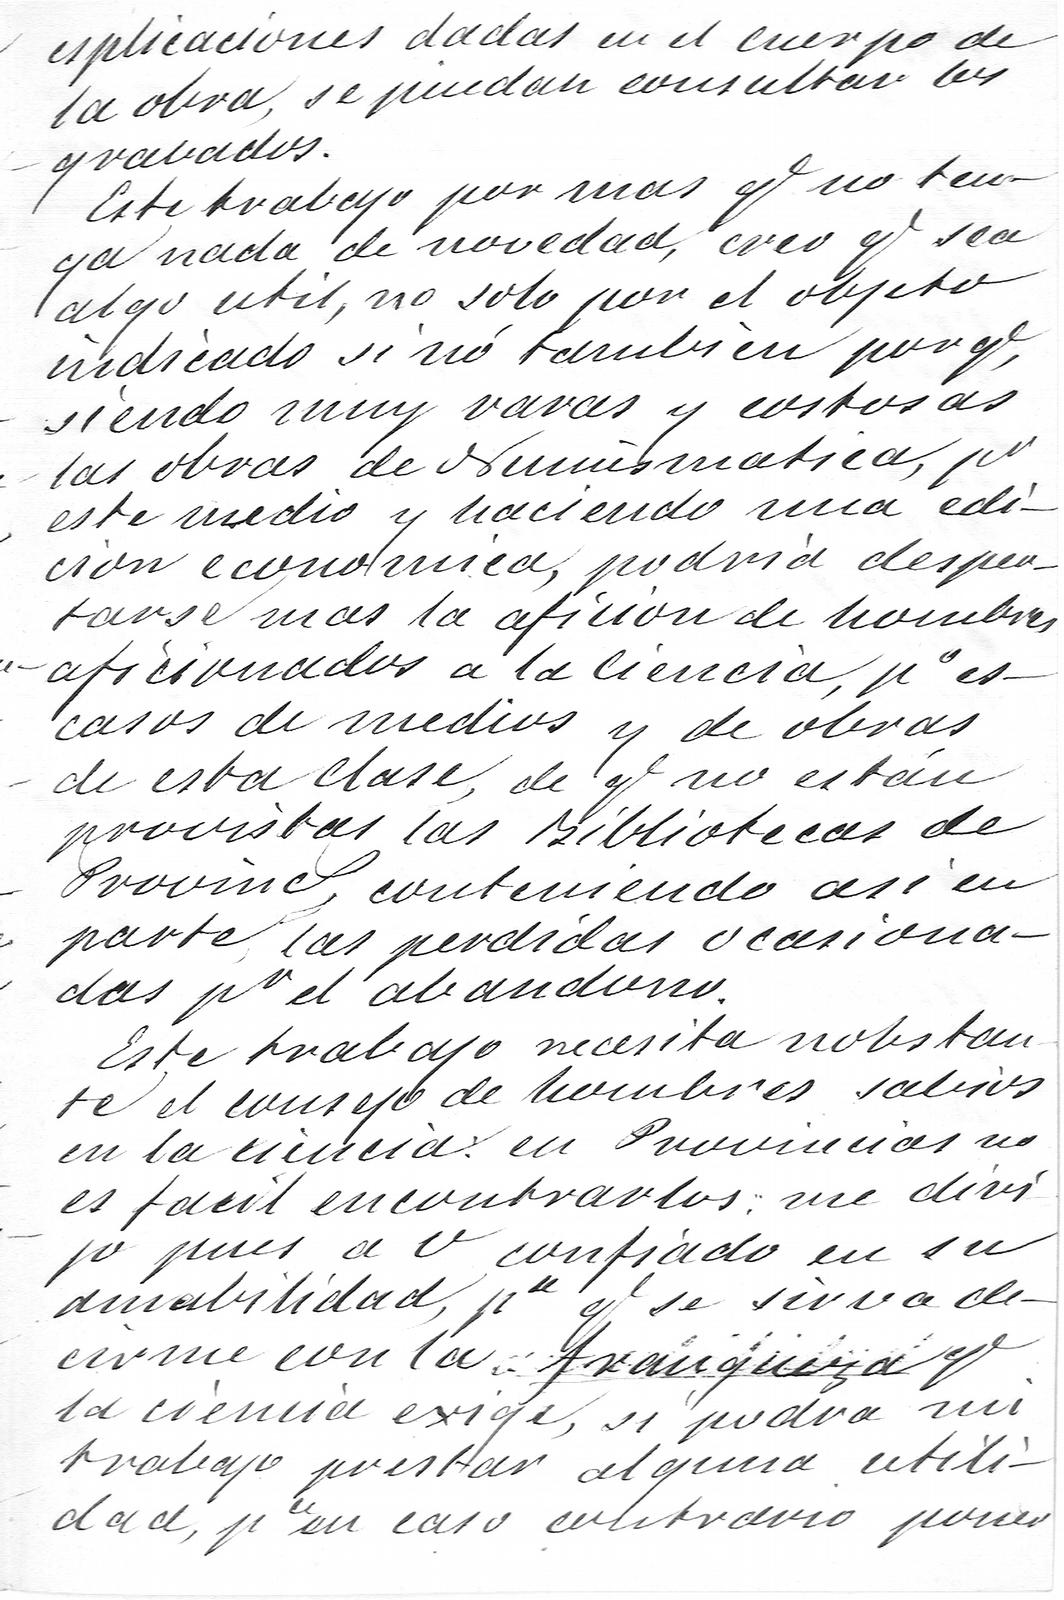 esplicaciones dadas en el cuerpo de
la obra, se puedan consultar los
grabados.
Este trabajo por mas qe no ten-
ga nada de novedad, creo qe sea
algo util, no solo por el objeto
indicado si nó tambien porqe,
siendo muy raras y costosas
las obras de Numismatica, pr
este medio y haciendo una edi-
cion economica, podria desper-
tarse mas la aficion de hombres
aficionados a la Ciencia, po es-
casos de medios y de obras
de esta Clase, de qe no están
provistas las Bibliotecas de
Provincs, conteniendo asi en
parte, las perdidas ocasiona-
das pr el abandono.
Este trabajo necesita nobstan-
te el consejo de hombres sabios
en la ciencia: en Provincias no
es facil encontrarlos: me diri
jo pues a V confiado en su
amabilidad, pa qe se sirva de-
cirme con la franqueza qe
la ciencia exige, si podra mi
trabajo prestar alguna utili-
dad, pa en caso contrario poner